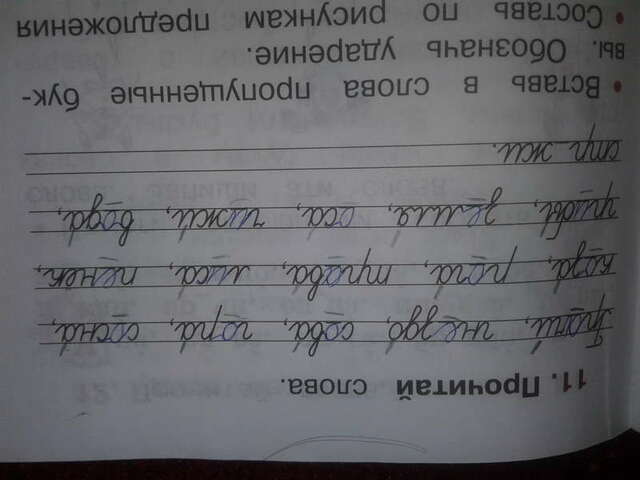 11. Прочитай слова.
Грачи́, гнездо́, сова́, гора́, сосна́,
коза́, рога́, трава́, лиса́, пенёк,
грибы́, земля́, оса́, чижи́, вода́,
стр жи.
• Вставь в слова пропущенные бук-
вы. Обозначь ударение.
• Составь по рисункам предложения